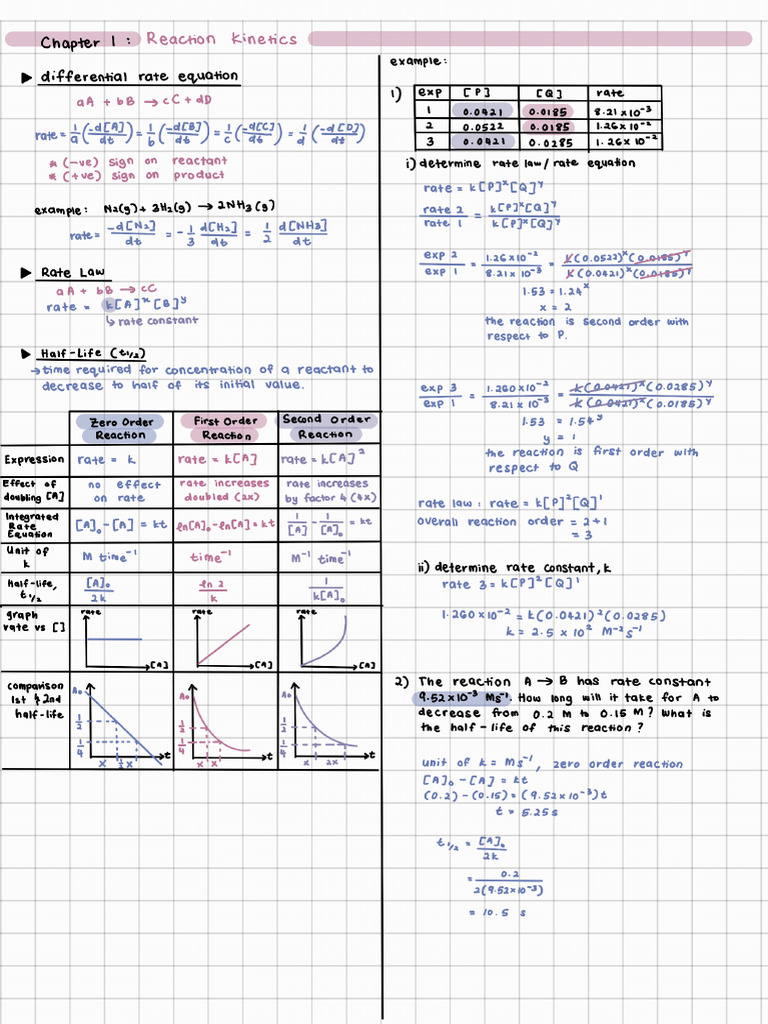 Chapter 1 : Reaction Kinetics
▶ differential rate equation
aA + bB → cC + dD
rate = 1/a (-d[A]/dt) = 1/b (-d[B]/dt) = 1/c (-d[C]/dt) = 1/d (-d[D]/dt)
* (-ve) sign on reactant
* (+ve) sign on product
example: N₂(g) + 3H₂(g) → 2NH₃(g)
rate = -d[N₂]/dt = -1/3 d[H₂]/dt = 1/2 d[NH₃]/dt
▶ Rate Law
aA + bB → cC
rate = k[A]ˣ[B]ʸ
↳ rate constant
▶ Half-Life (t1/2)
→ time required for concentration of a reactant to
decrease to half of its initial value.
Zero Order Reaction | First Order Reaction | Second Order Reaction
Expression | rate = k | rate = k[A] | rate = k[A]²
Effect of doubling [A] | no effect on rate | rate increases doubled (2x) | rate increases by factor 4 (4x)
Integrated Rate Equation | [A]₀ - [A] = kt | ln[A]₀ - ln[A] = kt | 1/[A] - 1/[A]₀ = kt
Unit of k | M time⁻¹ | time⁻¹ | M⁻¹ time⁻¹
Half-life, t1/2 | [A]₀/2k | ln 2/k | 1/k[A]₀
graph rate vs [] | rate [A] | rate [A] | rate [A]
comparison 1st & 2nd half-life | A₀ 1/2 1/4 x 1/2x t | A₀ 1/2 1/4 x x t | A₀ 1/2 1/4 x 2x t
example:
1) exp | [P] | [Q] | rate
1 | 0.0421 | 0.0185 | 8.21 x 10⁻³
2 | 0.0522 | 0.0185 | 1.26 x 10⁻²
3 | 0.0421 | 0.0285 | 1.26 x 10⁻²
i) determine rate law / rate equation
rate = k[P]ˣ[Q]ʸ
rate 2/rate 1 = k[P]ˣ[Q]ʸ/k[P]ˣ[Q]ʸ
exp 2/exp 1 = 1.26 x 10⁻²/8.21 x 10⁻³ = k(0.0522)ˣ(0.0185)ʸ/k(0.0421)ˣ(0.0185)ʸ
1.53 = 1.24ˣ
x = 2
the reaction is second order with
respect to P.
exp 3/exp 1 = 1.260 x 10⁻²/8.21 x 10⁻³ = k(0.0421)ˣ(0.0285)ʸ/k(0.0421)ˣ(0.0185)ʸ
1.53 = 1.54ʸ
y = 1
the reaction is first order with
respect to Q
rate law : rate = k[P]²[Q]¹
overall reaction order = 2+1
= 3
ii) determine rate constant, k
rate 3 = k[P]²[Q]¹
1.260 x 10⁻² = k(0.0421)²(0.0285)
k = 2.5 x 10² M⁻²s⁻¹
2) The reaction A → B has rate constant
9.52x10⁻³ Ms⁻¹. How long will it take for A to
decrease from 0.2 M to 0.15 M? What is
the half-life of this reaction?
unit of k = Ms⁻¹, zero order reaction
[A]₀ - [A] = kt
(0.2) - (0.15) = (9.52x10⁻³)t
t = 5.25 s
t1/2 = [A]₀/2k
= 0.2/2(9.52x10⁻³)
= 10.5 s